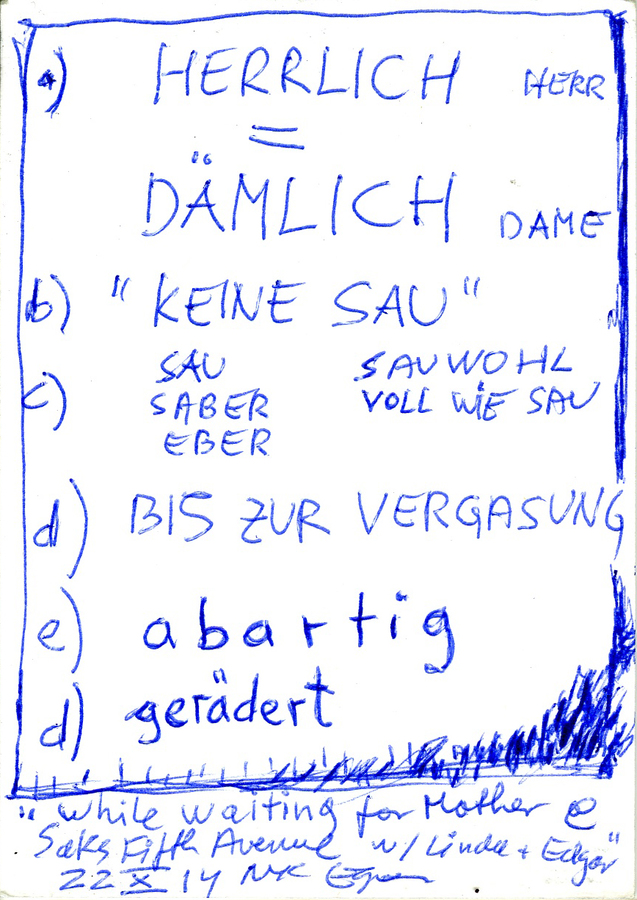 a) HERRLICH HERR
=
DÄMLICH DAME
b) "KEINE SAU"
SAU SAUWOHL
c) SABER VOLL WIE SAU
EBER
d) BIS ZUR VERGASUNG
e) abartig
d) gerädert
"while waiting for Mother @
Saks Fifth Avenue w/ Linda + Edgar"
22 X 14 NYC